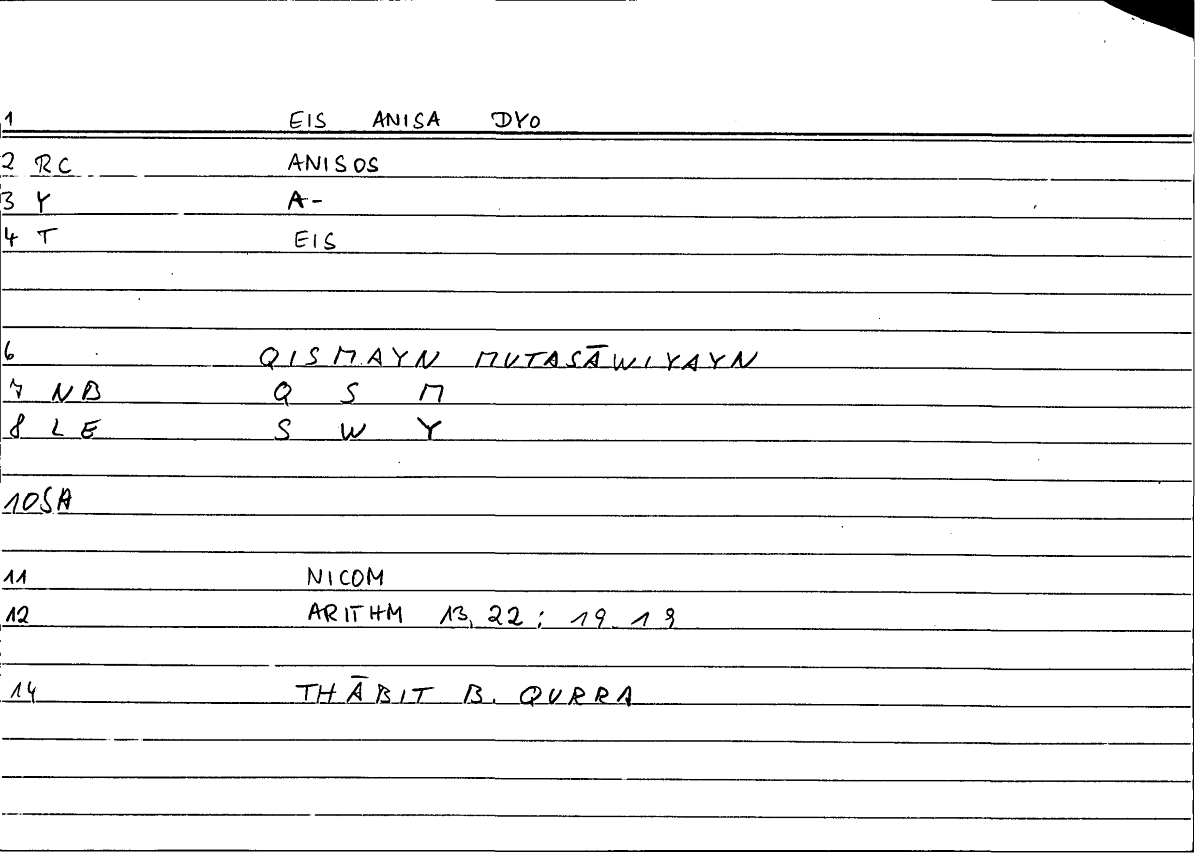 1 EIS ANISA DYO
2 RC ANISOS
3 Y A-
4 T EIS
6 QISMAYN MUTASĀWIYAYN
7 NB Q S M
8 LE S W Y
10 SA
11 NICOM
12 ARITHM 13, 22 ; 19 19
14 THĀBIT B. QURRA